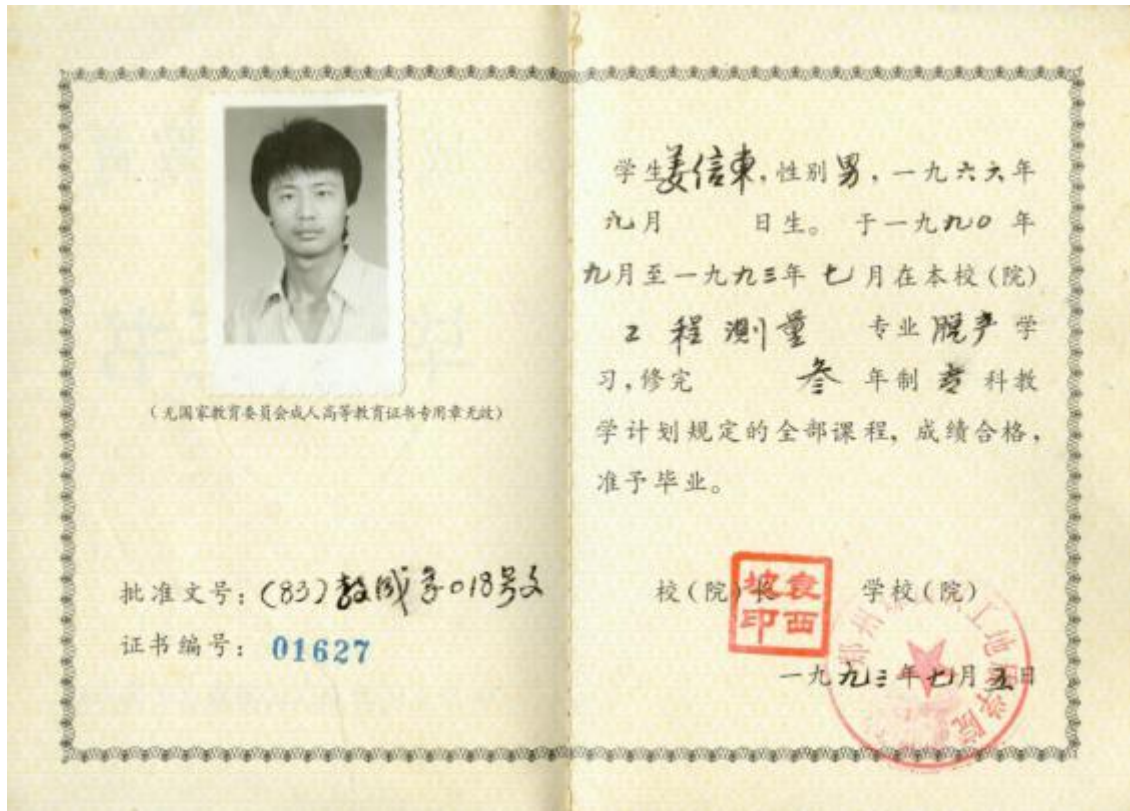 (无国家教育委员会成人高等教育证书专用章无效)
批准文号:(83)教成字018号文
证书编号: 01627
学生姜信東,性别男,一九六六年
九月 日生。于一九九0 年
九月至一九九三年 七月在本校(院)
工程测量 专业脱产学
习,修完 叁 年制 专 科教
学计划规定的全部课程,成绩合格,
准予毕业。
校(院)长 学校(院)
袁西坡印
郑州 工地质学院
一九九三年七月五日